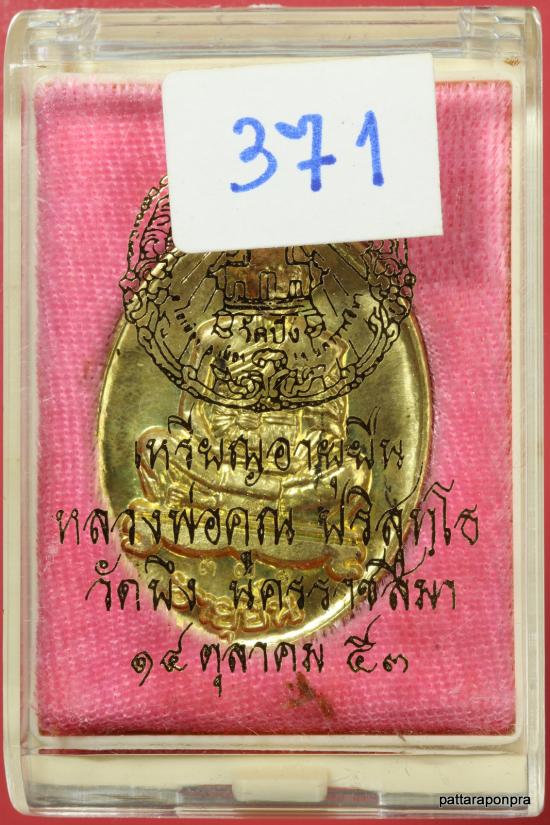 371
วัดบึง
เหรียญอายุยืน
หลวงพ่อคูณ ปริสุทฺโธ
วัดบึง นครราชสีมา
๑๔ ตุลาคม ๕๓
pattaraponpra